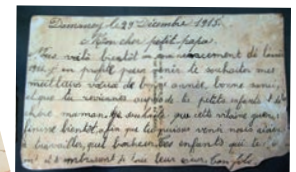 le 29 Décembre 1915.
Mon cher petit papa.
bientôt un
profite pour venir te souhaiter mes
meilleurs vœux de bonne année, bonne santé,
et que tu reviennes auprès de tes petits enfants
chère maman. Je souhaite que cette vilaine guerre
finisse bientôt, afin que tu puisses venir nous aider
à travailler, quel bonheur. Tes enfants qui te
de tout leur cœur. Ton fils.